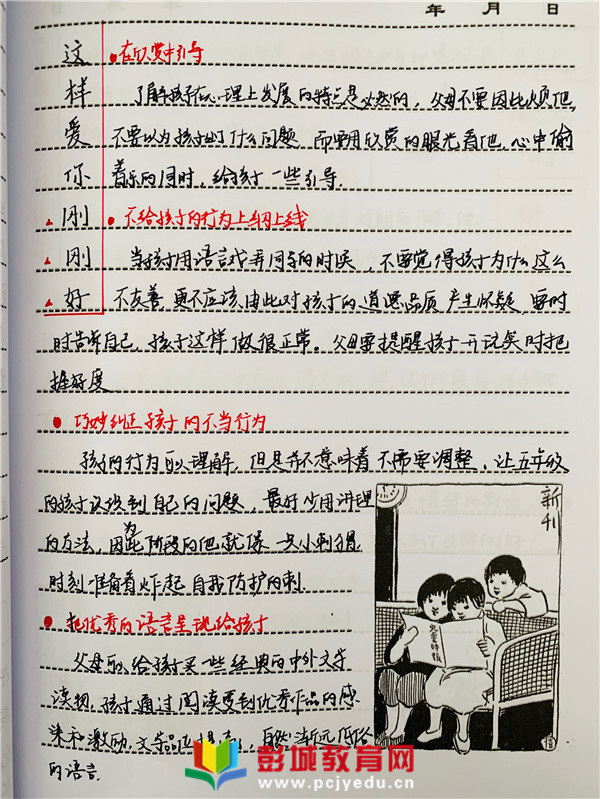 年 月 日
这样爱你刚刚好
在欣赏中引导
了解孩子在心理上发展的特点是必然的，父母不要因此烦他，
不要以为孩子出了什么问题 而要用欣赏的眼光看他，心中偷
着乐的同时，给孩子一些引导.
不给孩子的行为上纲上线
当孩子用语言戏弄同学的时候，不要觉得孩子为什么这么
不友善，更不应该由此对孩子的道德品质产生怀疑，要时
时告诉自己，孩子这样做很正常。父母要提醒孩子开玩笑时把
握好度
巧妙纠正孩子的不当行为
孩子的行为可以理解，但是并不意味着不需要调整，让五年级
的孩子认识到自己的问题，最好少用讲理
的方法，因为此阶段的他就像一只小刺猬
时刻准备着炸起自我防护的刺.
把优秀的语言呈现给孩子
父母可以给孩子买一些经典的中外文学
读物，孩子通过阅读受到优秀作品的感
染和激励，文学品位提高，自然渐远低俗
的语言.
新刊
儿童时报
彭城教育网
www.pcjyedu.cn